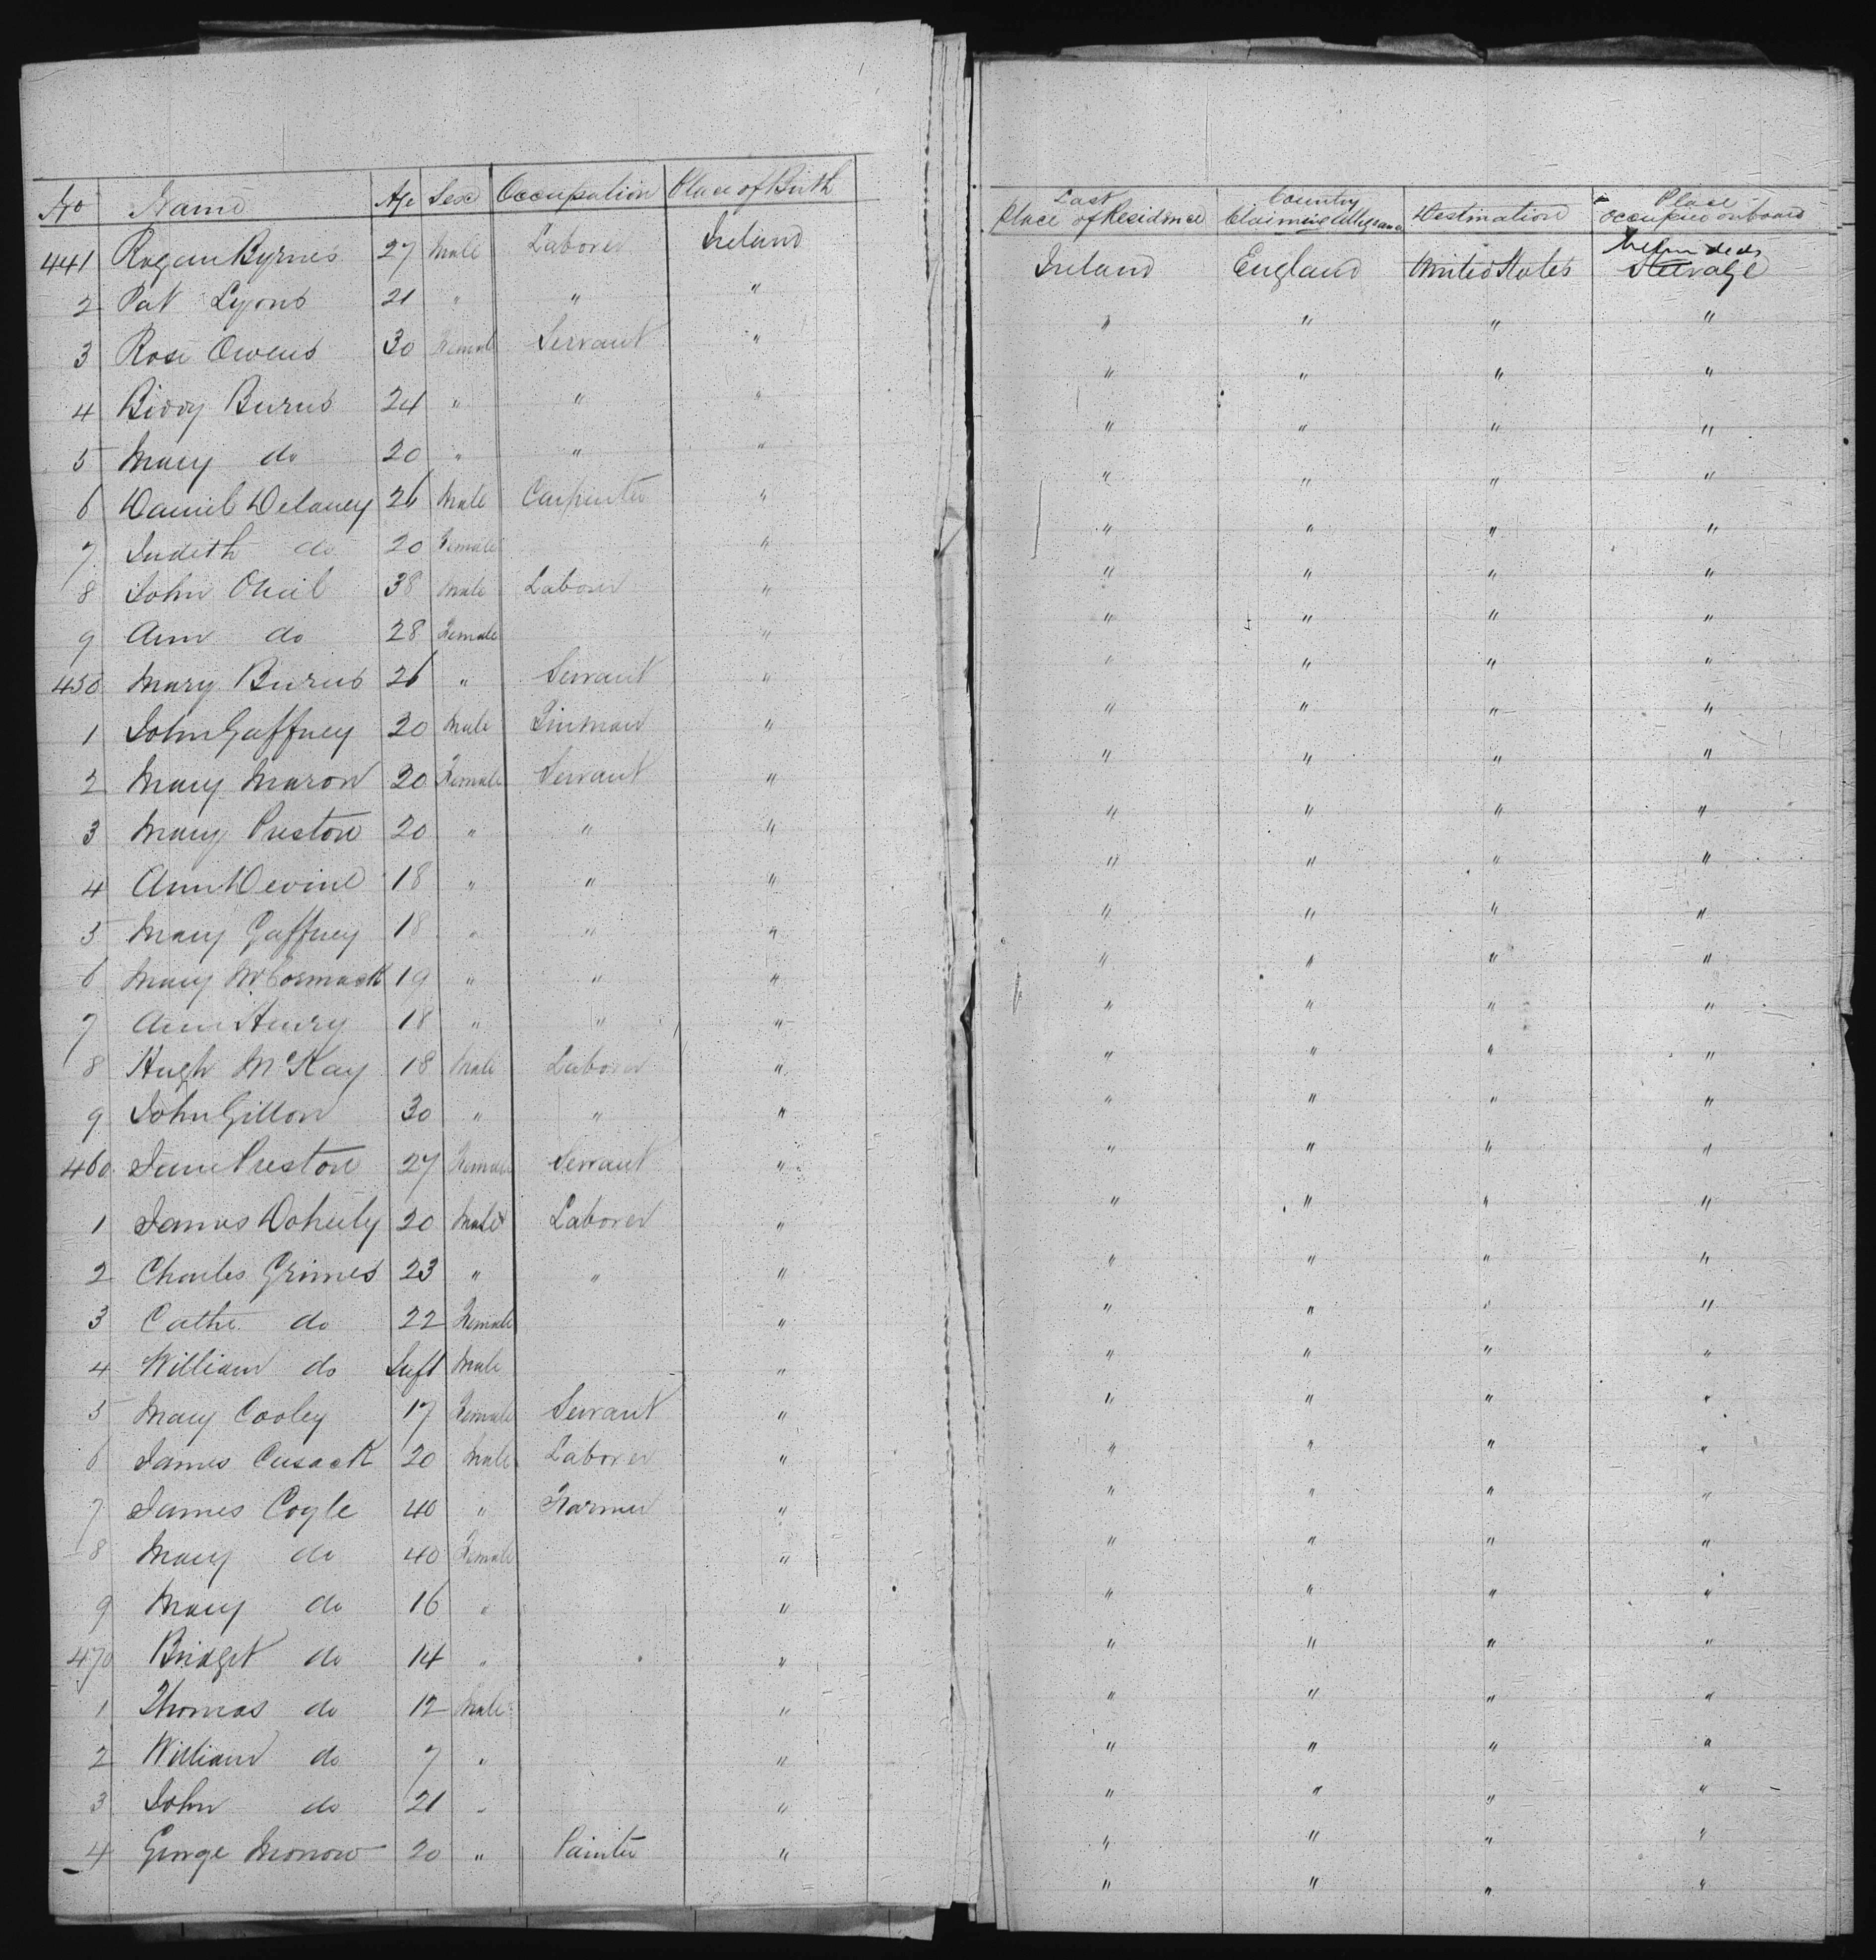 No Name Age Sex Occupation Place of Birth
441 Byrnes 27 Male Laborer Ireland
2 Pat Lyons 21 " " "
3 Rose Owens 30 Female Servant "
4 Biddy Burns 24 " " "
5 Mary do 20 " " "
6 Daniel Delaney 26 Male Carpenter "
7 Judith do 20 Female "
8 John Oneil 38 Male Laborer "
9 Ann do 28 Female "
450 Mary Burns 26 " Servant "
1 John Gaffney 20 Male Tinman "
2 Mary Maron 20 Female Servant "
3 Mary Preston 20 " " "
4 Ann Devine 18 " " "
5 Mary Gaffney 18 " " "
6 Mary McCormack 19 " " "
7 Ann Henry 18 " " "
8 Hugh McKay 18 Male Laborer "
9 John Gillon 30 " " "
460 Jane Preston 27 Female Servant "
1 James Doherty 20 Male Laborer "
2 Charles Grimes 23 " " "
3 Cathe do 22 Female "
4 William do Inft Male "
5 Mary Cooley 17 Female Servant "
6 James Cusack 20 Male Laborer "
7 James Cogle 40 " Farmer "
8 Mary do 40 Female "
9 Mary do 16 " "
470 Bridget do 14 " "
1 Thomas do 12 Male "
2 William do 7 " "
3 John do 21 " "
4 George Morrow 20 " Painter "
Last Place of Residence Country Claiming Allegiance Destination Place occupied on board
Ireland England United States Steerage
" " " "
" " " "
" " " "
" " " "
" " " "
" " " "
" " " "
" " " "
" " " "
" " " "
" " " "
" " " "
" " " "
" " " "
" " " "
" " " "
" " " "
" " " "
" " " "
" " " "
" " " "
" " " "
" " " "
" " " "
" " " "
" " " "
" " " "
" " " "
" " " "
" " " "
" " " "
" " " "
" " " "